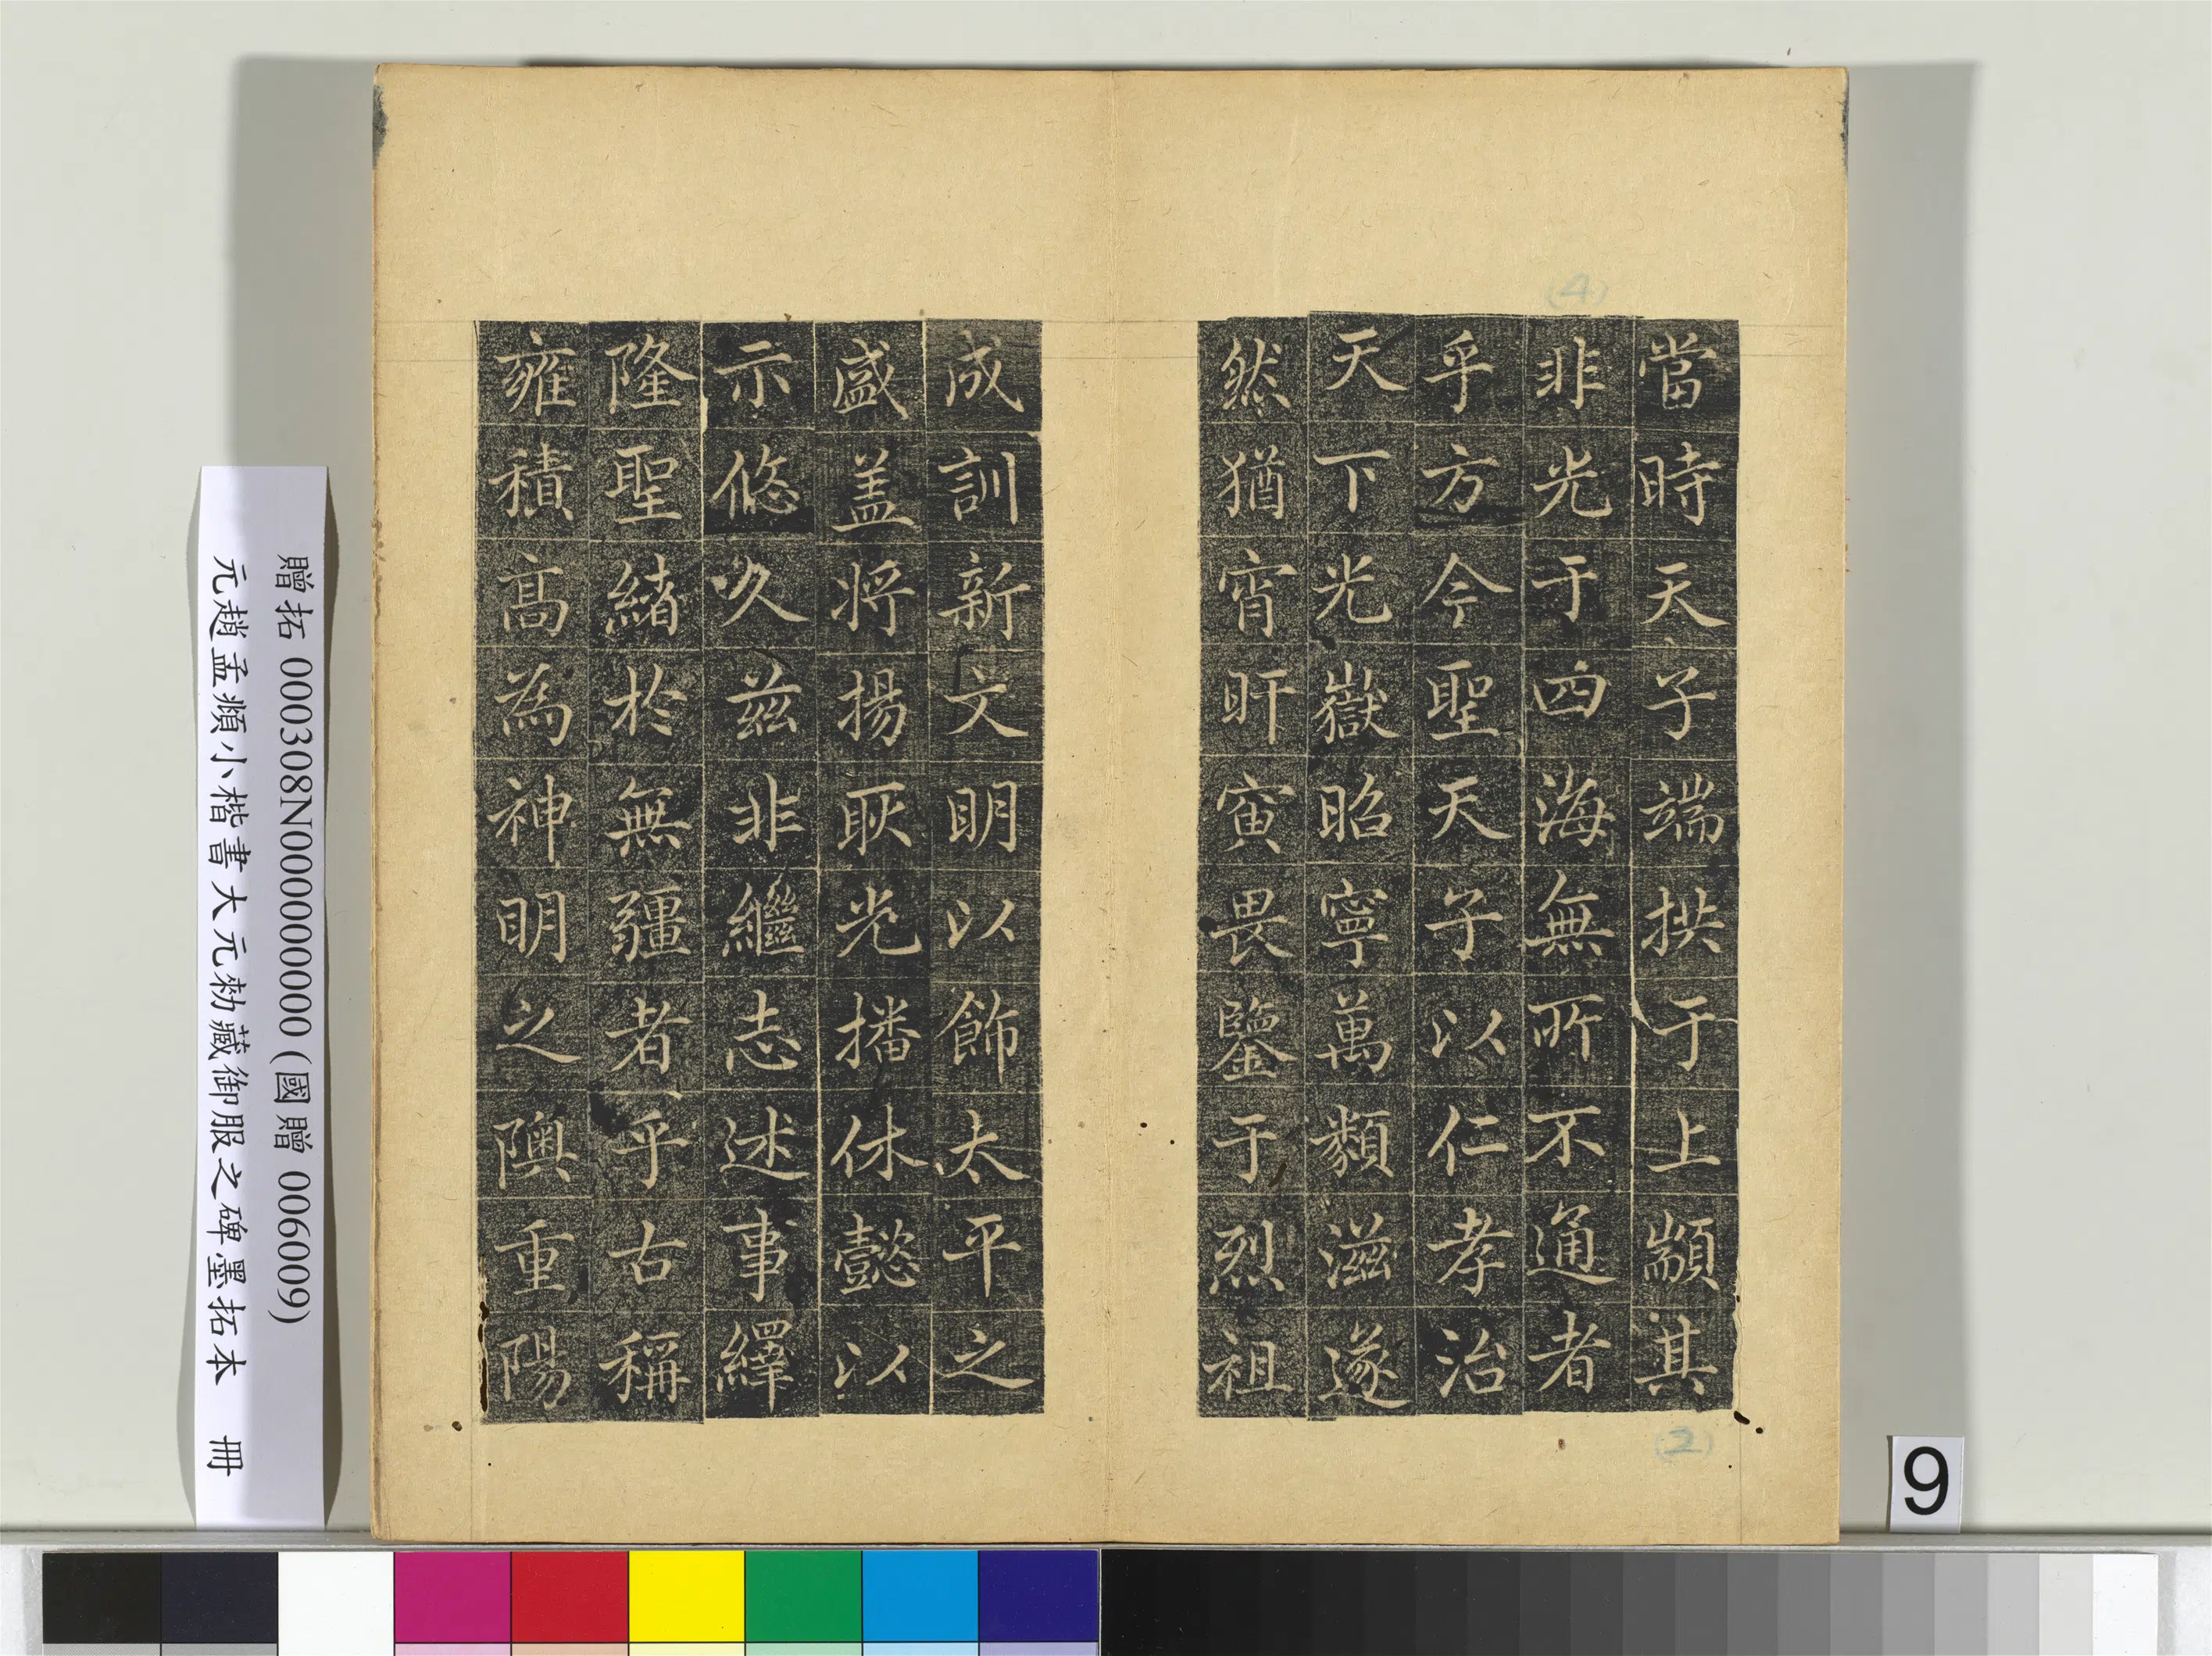 當時天子端拱于上顓其
非光于四海無所不通者
乎方今聖天子以仁孝治
天下光嶽昭寧萬類滋遂
然猶宵旰寅畏鑒于烈祖
成訓新文明以飾太平之
盛盖将揚耿光播休懿以
示悠久茲非繼志述事繹
隆聖緒於無疆者乎古稱
雍積高為神明之隩重陽
贈拓 000308N000000000 (國贈 006009)
元趙孟頫小楷書大元勑藏御服之碑墨拓本 冊
(4)
(2)
9